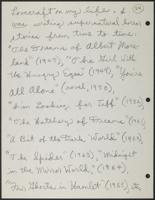 Lovecraft in my life. I
was writing supernatural horror
stories from time to time:
"The Dreams of Albert More-
land" (1947), "The Girl With
the Hungry Eyes" (1949), "You're
All Alone" (novel, 1950),
"I'm Looking for Jeff" (1952),
"The Hatchery of Dreams" (1961),
"A Bit of the Dark World" (1962),
"The Spider" (1963), "Midnight
in the Mirror World," (1964),
"Four Ghosts in Hamlet" (1965), to